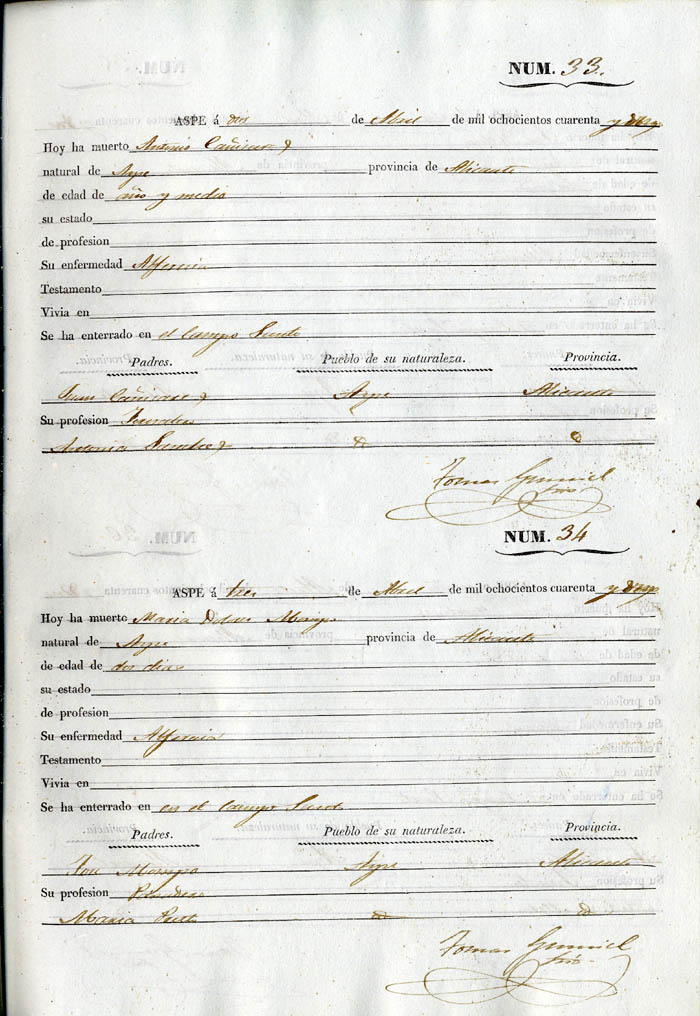 NUM. 33.
ASPE á dos de Abril de mil ochocientos cuarenta y
Hoy ha muerto Antonio Cañizares
natural de Aspe provincia de Alicante
de edad de año y medio
su estado
de profesion
Su enfermedad Alferecia
Testamento
Vivia en
Se ha enterrado en el Campo Santo
Padres. Pueblo de su naturaleza. Provincia.
Juan Cañizares Aspe Alicante
Su profesion
Antonia
Tomas
NUM. 34
ASPE á tres de Abril de mil ochocientos cuarenta y
Hoy ha muerto Maria
natural de Aspe provincia de Alicante
de edad de dos dias
su estado
de profesion
Su enfermedad Alferecia
Testamento
Vivia en
Se ha enterrado en en el Campo Santo
Padres. Pueblo de su naturaleza. Provincia.
Aspe Alicante
Su profesion
Maria
Tomas